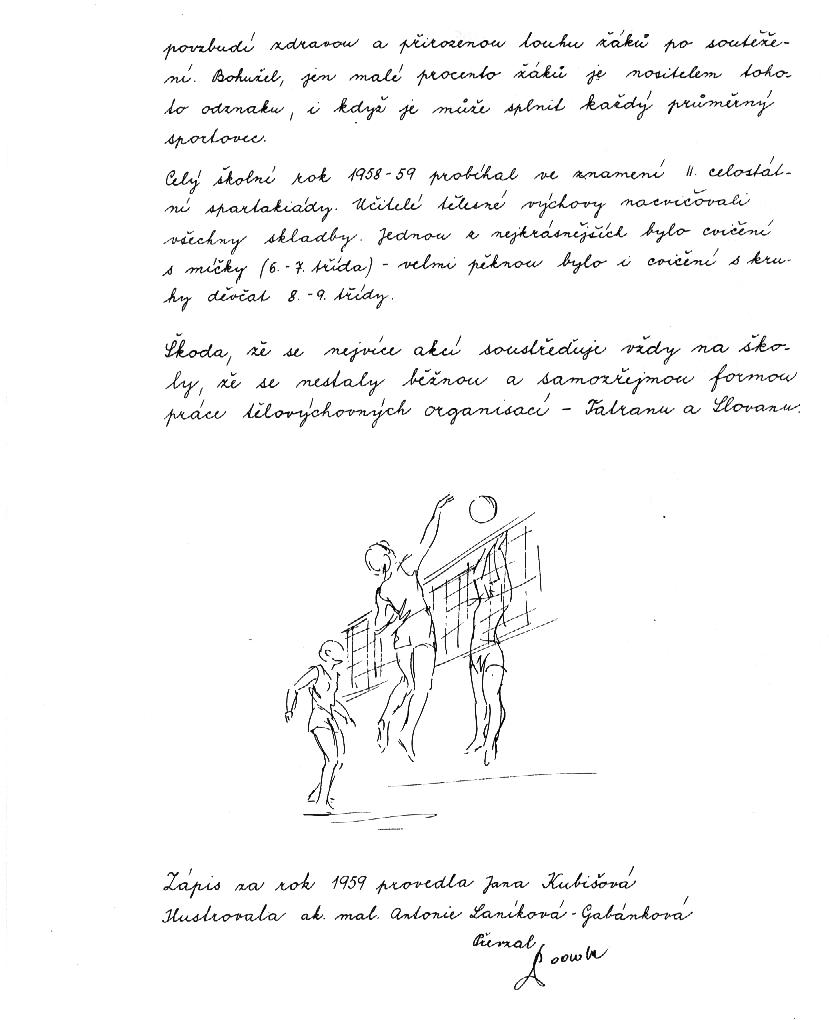 povzbudí zdravou a přirozenou touhu žáků po soutěže-
ní. Bohužel, jen malé procento žáků je nositelem toho-
to odznaku, i když je může splnit každý průměrný
sportovec.
Celý školní rok 1958-59 probíhal ve znamení II. celostát-
ní spartakiády. Učitelé tělesné výchovy nacvičovali
všechny skladby. Jednou z nejkrásnějších bylo cvičení
s míčky (6.-7. třída) - velmi pěknou bylo i cvičení s kru-
hy děvčat 8.-9. třídy.
Škoda, že se nejvíce akcí soustřeďuje vždy na ško-
ly, že se nestaly běžnou a samozřejmou formou
práce tělovýchovných organisací - Tatranu a Slovanu.
Zápis za rok 1959 provedla Jana Kubišová
Ilustrovala ak. mal. Antonie Laníková-Gabánková
Převzal